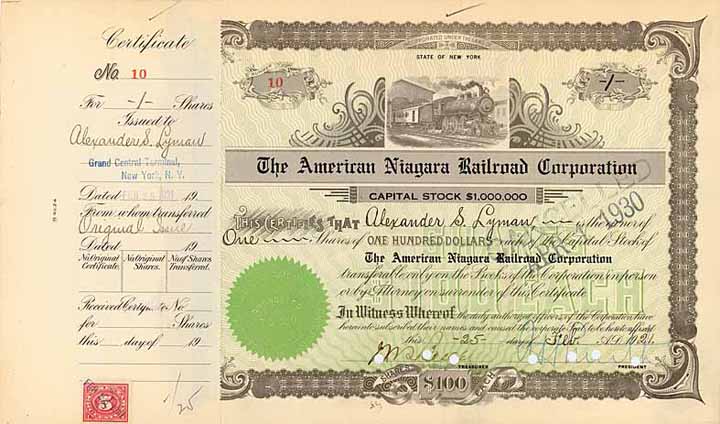 Certificate
No. 10
For -/- Shares
Issued to
Alexander S. Lyman
Grand Central Terminal,
New York, N. Y.
Dated FEB 25 1921 19
From whom transferred
Original Issue
Dated 19
No Original Certificate. No Original Shares. No of Shares Transferred.
Received Certificate No
for Shares
this day of 19
5
-/25
INCORPORATED UNDER THE LAWS
STATE OF NEW YORK
10
-/-
The American Niagara Railroad Corporation
CAPITAL STOCK $1,000,000
CANCELLED
1930
THIS CERTIFIES THAT Alexander S. Lyman is the owner of
One Shares of ONE HUNDRED DOLLARS each of the Capital Stock of
The American Niagara Railroad Corporation
transferable only on the Books of the Corporation in person
or by Attorney on surrender of this Certificate
In Witness Whereof the duly authorized officers of the Corporation have
hereunto subscribed their names and caused the corporate Seal to be hereto affixed
this -25- day of Feb. A.D. 1921.
TREASURER
PRESIDENT
SHARES
$100
EACH